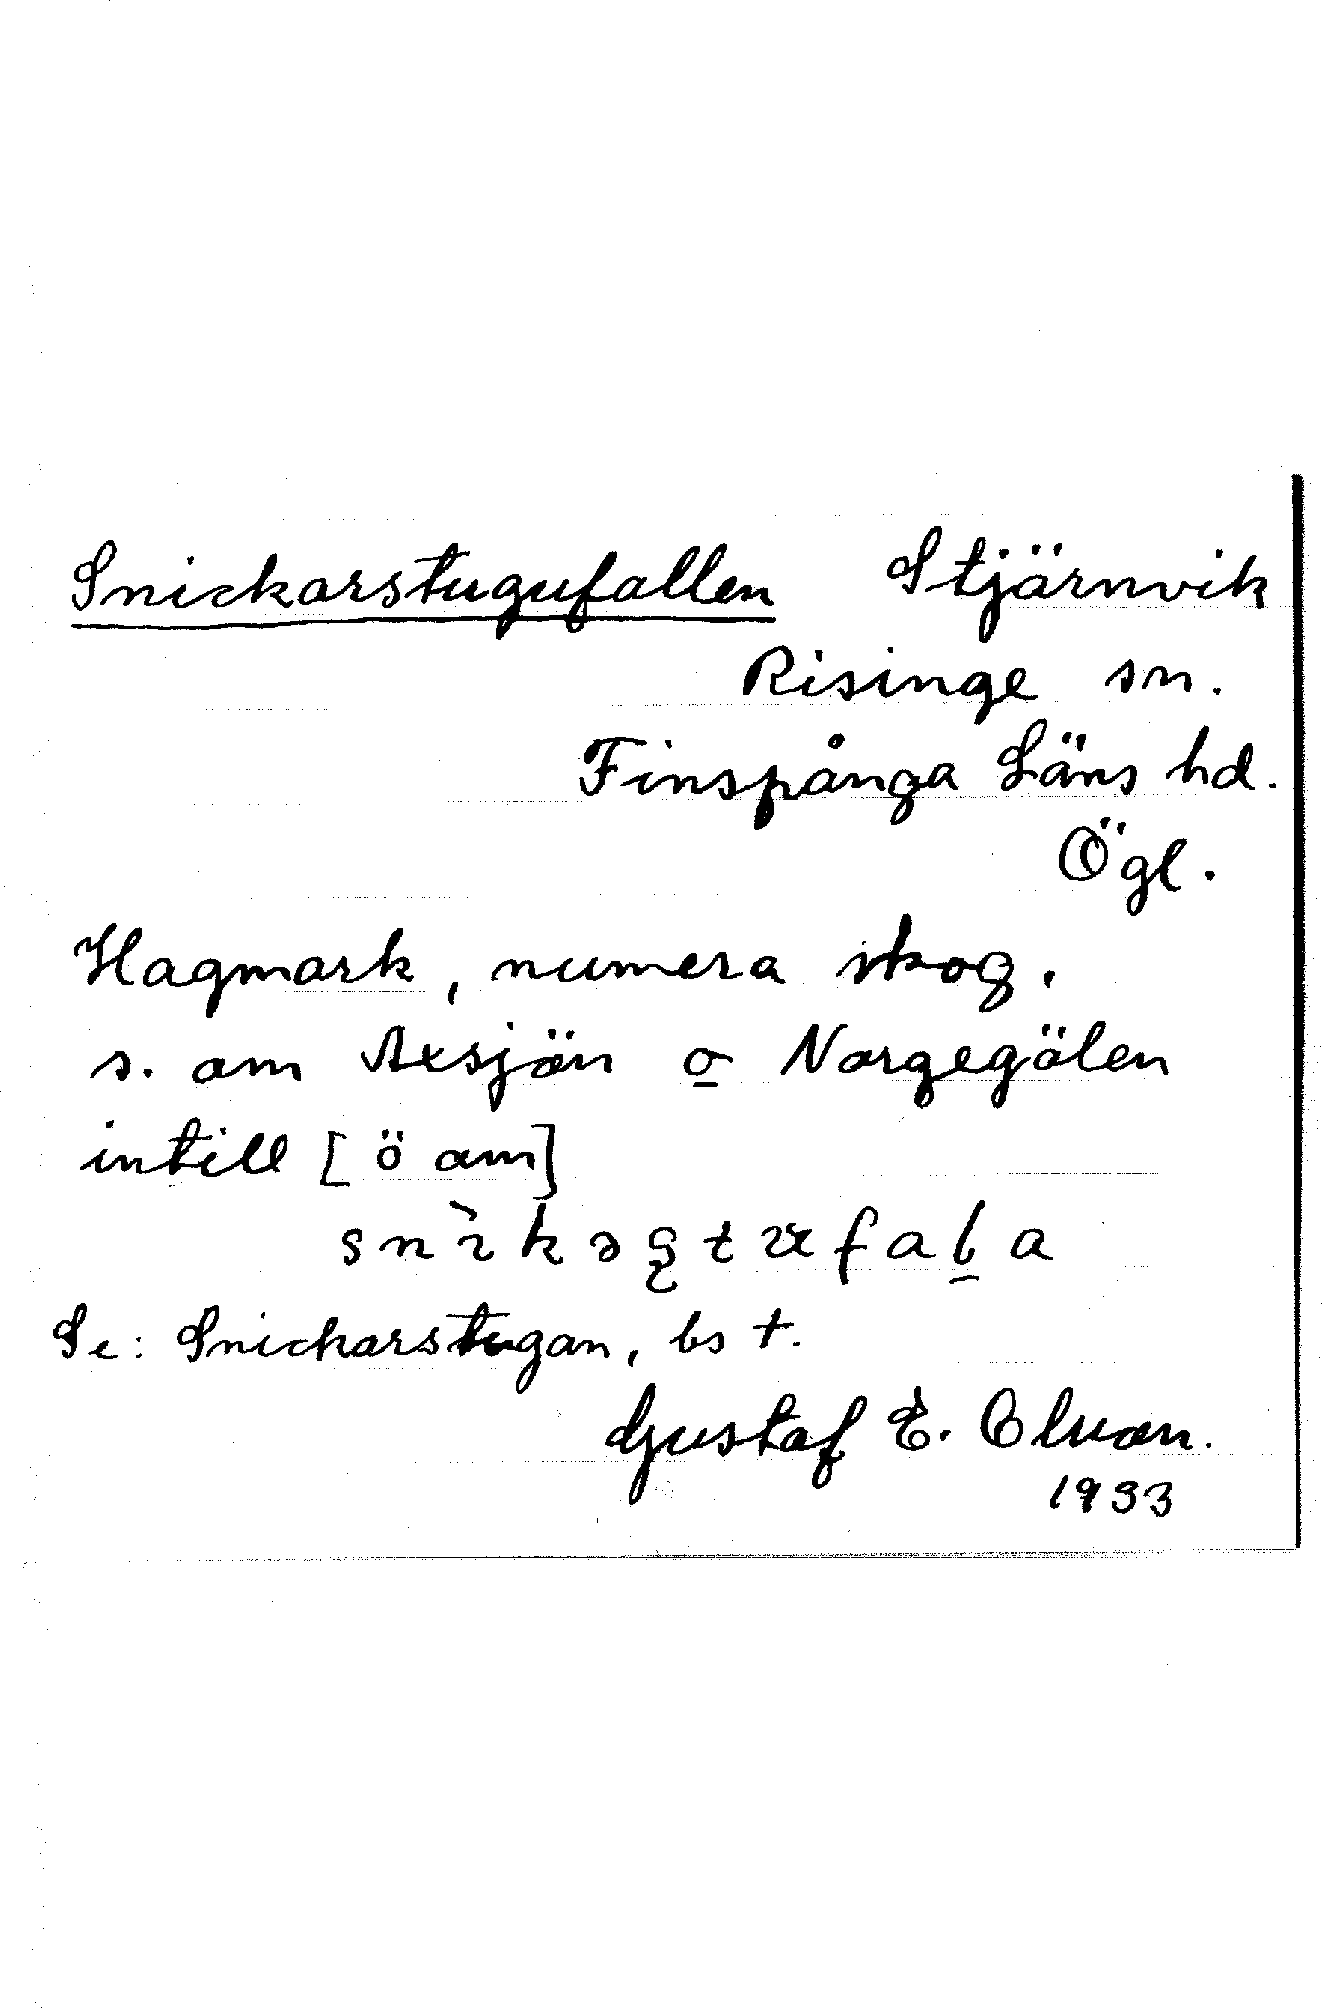 Snickarstugufallen Stjärnvik
Risinge sn.
Finspånga Läns hd.
Ögl.
Hagmark, numera skog.
s. om Axsjön o Norgegölen
intill [ö om]
Se: Snickarstugan, bs t.
Gustaf E.
1933